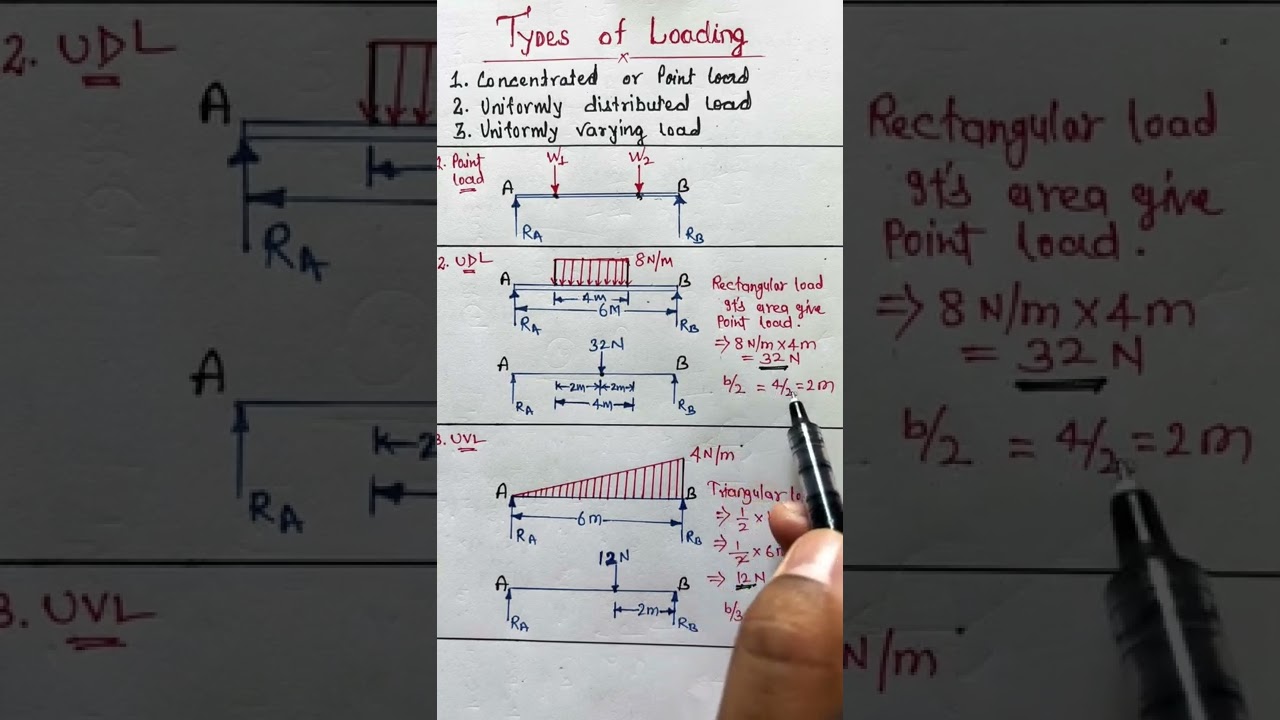 Types of Loading
1. Concentrated or Point load
2. Uniformly distributed load
3. Uniformly varying load
1. Point load
W1 W2
A B
RA RB
2. UDL
8 N/m
A B
4m
6M
RA RB
Rectangular load
It's area give
Point load.
⇒ 8 N/m × 4 m
= 32 N
b/2 = 4/2 = 2m
32 N
A B
2m 2m
4m
RA RB
3. UVL
4 N/m
A B
6m
RA RB
Triangular
⇒ 1/2 ×
⇒ 1/2 × 6
⇒ 12 N
b/3
12 N
A B
2m
RA RB
2. UDL
A
RA
A
RA
3. UVL
Rectangular load
It's area give
Point load.
⇒ 8 N/m × 4 m
= 32 N
b/2 = 4/2 = 2 m
N/m